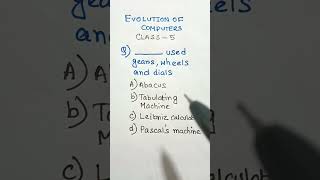 EVOLUTION OF
COMPUTERS
CLASS - 5
Q) _____ used
gears, wheels
and dials
A) Abacus
b) Tabulating
Machine
c) Leibniz calculat
d) Pascal's machine